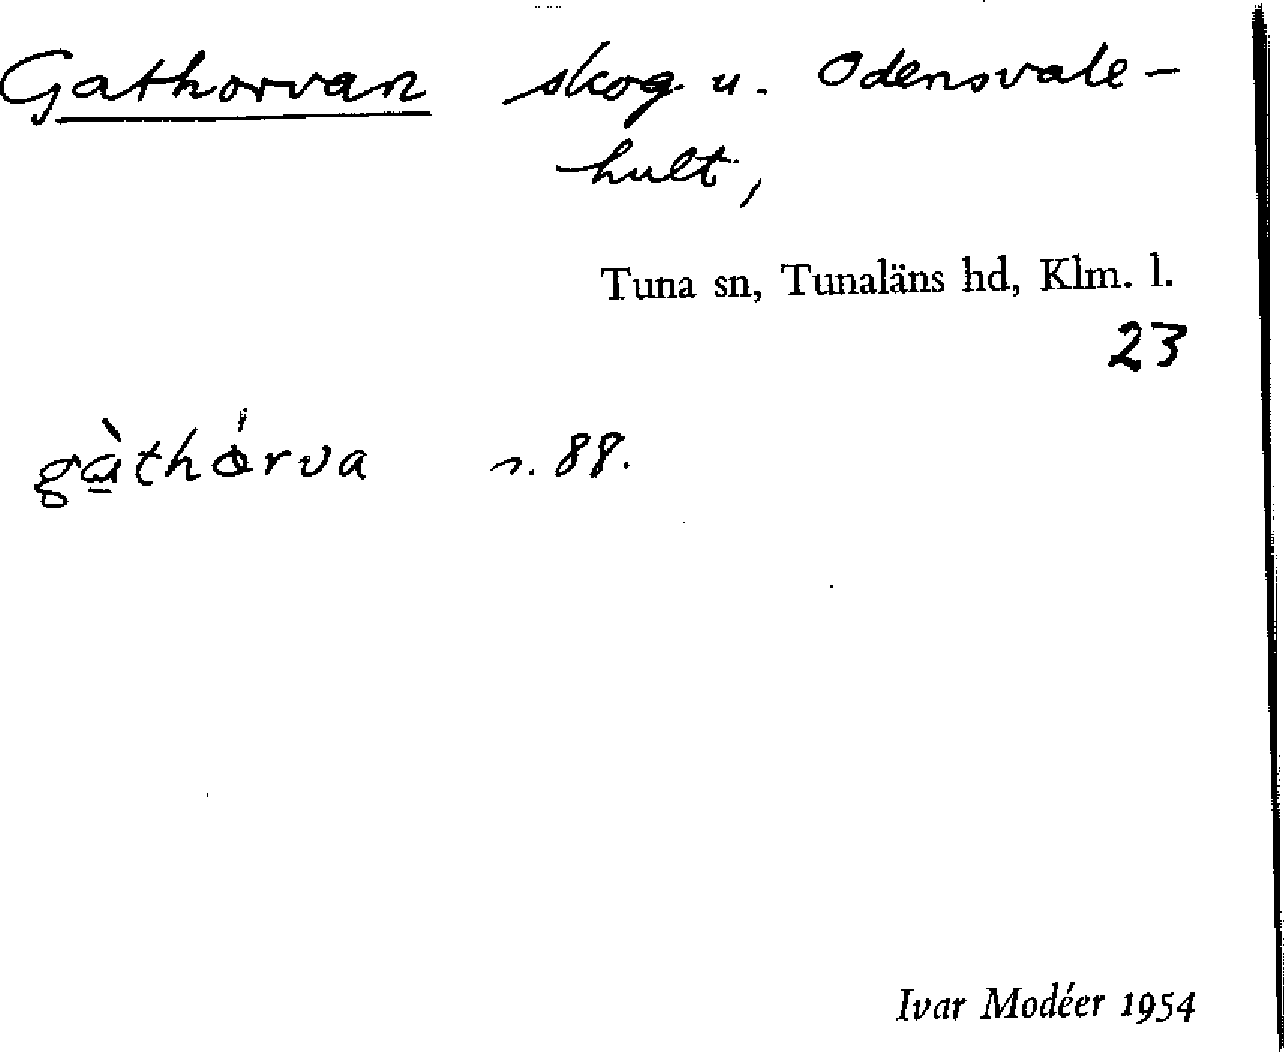 Gathorvan skog u. Odensvale-
hult,
Tuna sn, Tunaläns hd, Klm. l.
23
gàthórva s. 88.
Ivar Modéer 1954